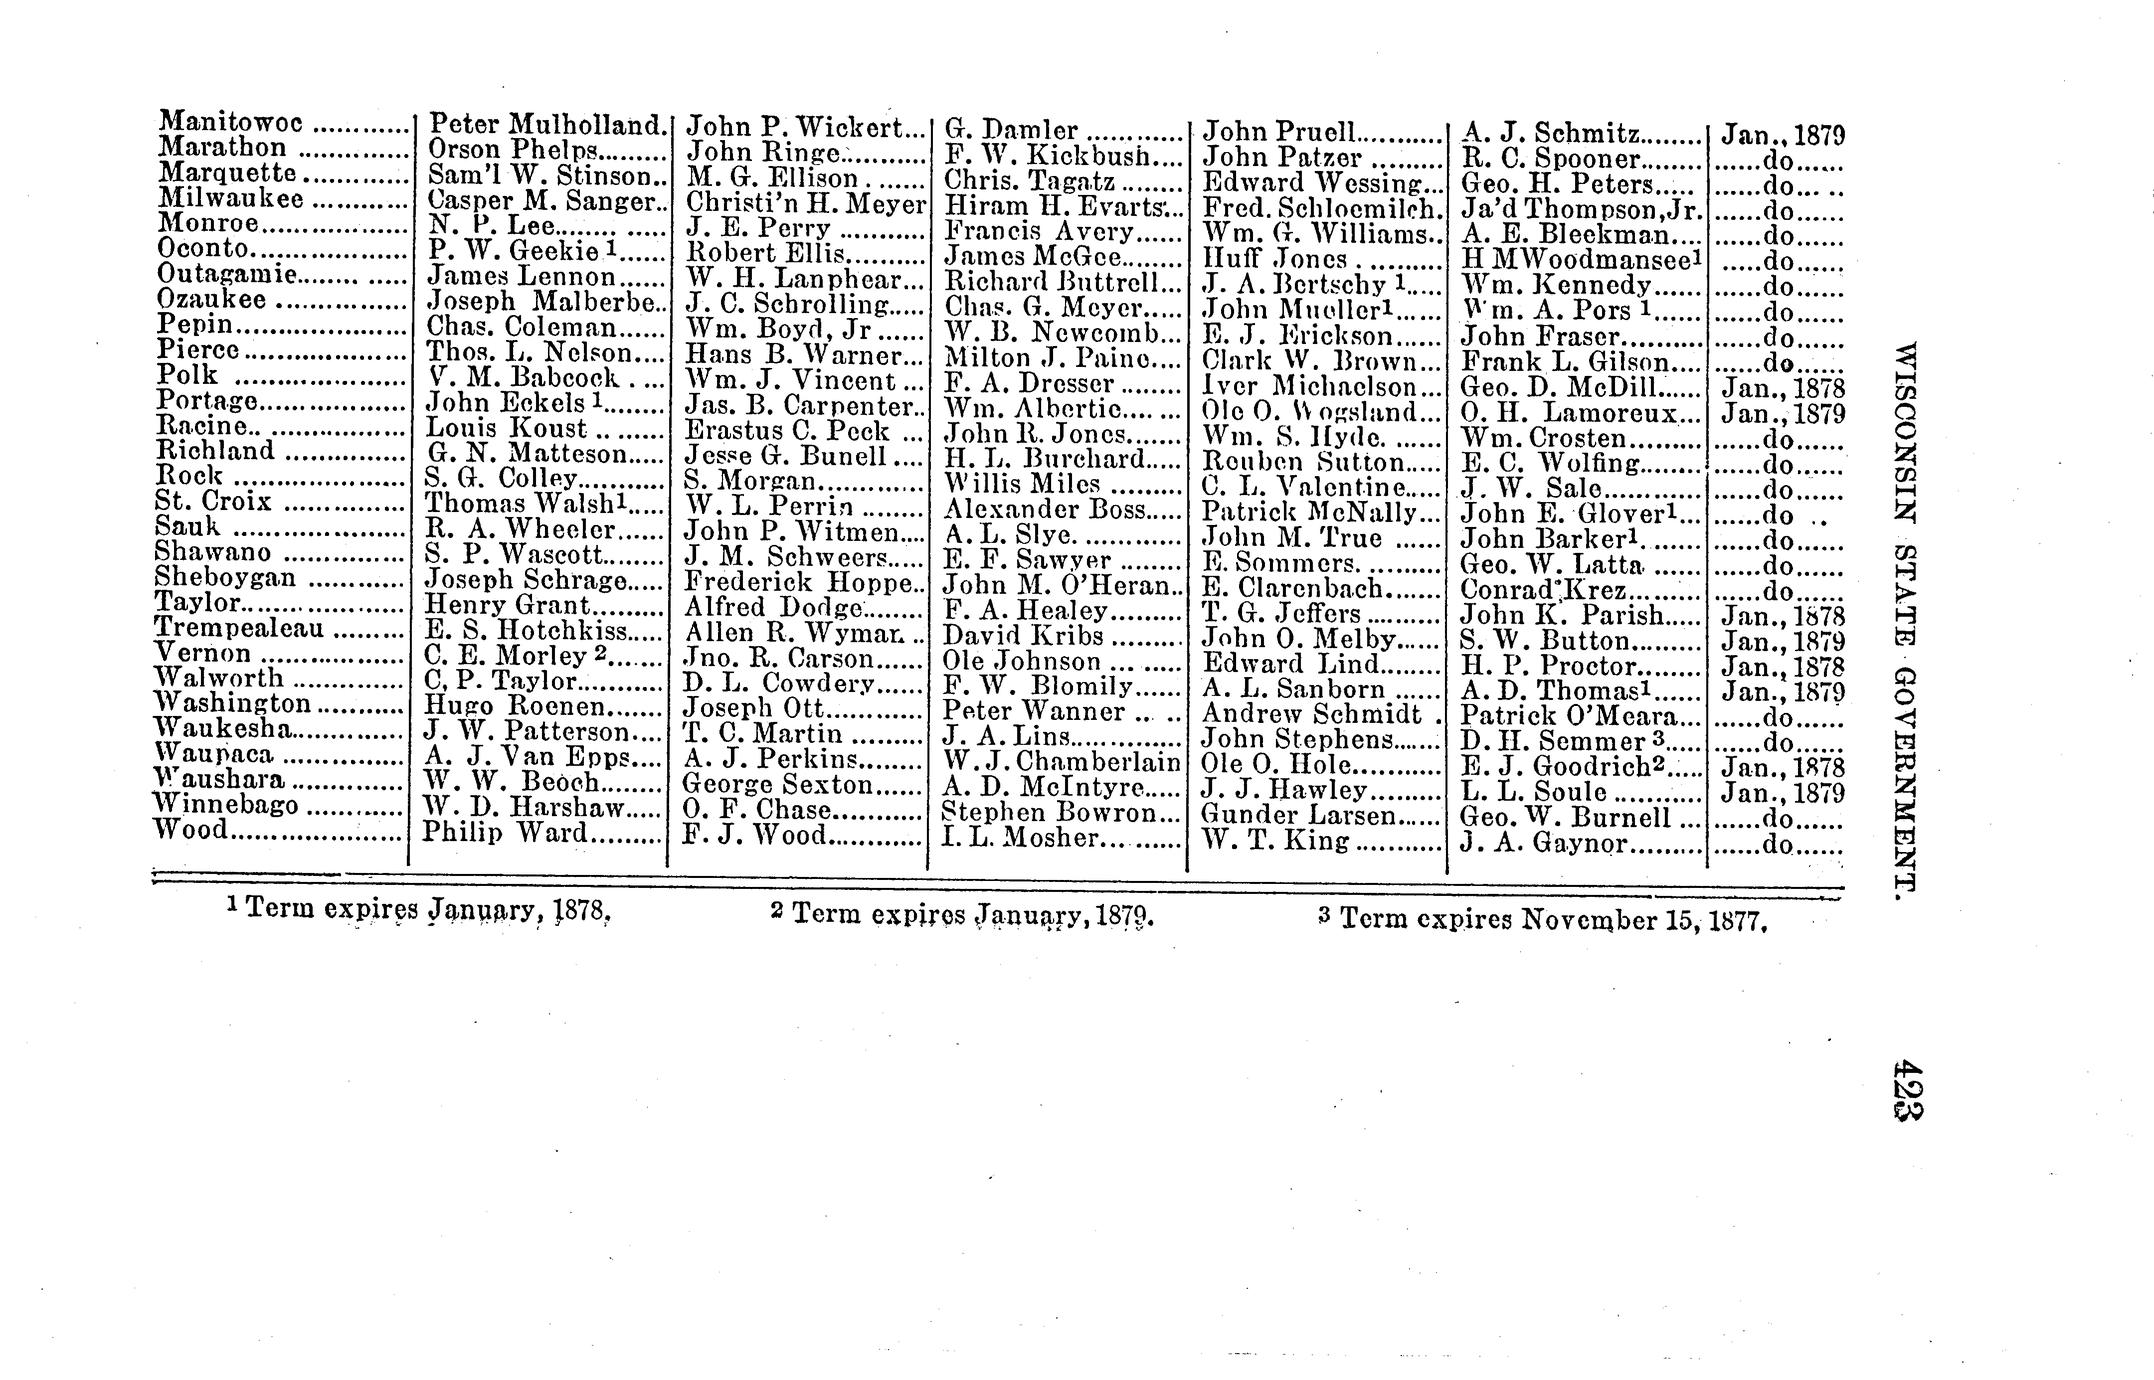 Manitowoc ............ Peter Mulholland. John P. Wickert... G. Damler ............ John Pruell........... A. J. Schmitz........ Jan., 1879
Marathon .............. Orson Phelps......... John Ringe........... F. W. Kickbush.... John Patzer ......... R. C. Spooner....... ......do......
Marquette ............. Sam'l W. Stinson.. M. G. Ellison ....... Chris. Tagatz ........ Edward Wessing... Geo. H. Peters..... ......do... ..
Milwaukee ............ Casper M. Sanger.. Christi'n H. Meyer Hiram H. Evarts... Fred. Schloemilch. Ja'd Thompson,Jr. ......do......
Monroe................... N. P. Lee........ ..... J. E. Perry ........... Francis Avery...... Wm. G. Williams.. A. E. Bleekman.... ......do......
Oconto..................... P. W. Geekie 1...... Robert Ellis.......... James McGee........ Huff Jones .......... H M Woodmansee1 .....do......
Outagamie........ ..... James Lennon...... W. H. Lanphear... Richard Buttrell... J. A. Bertschy 1..... Wm. Kennedy...... ......do......
Ozaukee ................. Joseph Malberbe.. J. C. Schrolling..... Chas. G. Meyer..... John Mueller1...... Wm. A. Pors 1...... ......do......
Pepin...................... Chas. Coleman...... Wm. Boyd, Jr ...... W. B. Newcomb... E. J. Erickson...... John Fraser.......... ......do......
Pierce..................... Thos. L. Nelson.... Hans B. Warner... Milton J. Paine.... Clark W. Brown... Frank L. Gilson.... ......do......
Polk ...................... V. M. Babcock . ... Wm. J. Vincent ... F. A. Dresser ........ Iver Michaelson... Geo. D. McDill...... Jan., 1878
Portage................... John Eckels 1........ Jas. B. Carpenter.. Wm. Albertie.... ... Ole O. Wogsland... O. H. Lamoreux... Jan., 1879
Racine.. ................. Louis Koust .. ....... Erastus C. Peck ... John R. Jones....... Wm. S. Hyde. ...... Wm. Crosten......... ......do......
Richland ............... G. N. Matteson..... Jesse G. Bunell .... H. L. Burchard..... Reuben Sutton..... E. C. Wolfing........ ......do......
Rock ...................... S. G. Colley........... S. Morgan............. Willis Miles ......... C. L. Valentine..... J. W. Sale............ ......do......
St. Croix ............... Thomas Walsh1..... W. L. Perrin ........ Alexander Boss..... Patrick McNally... John E. Glover1... ......do ..
Sauk ...................... R. A. Wheeler...... John P. Witmen.... A. L. Slye. ............ John M. True ...... John Barker1. ....... ......do......
Shawano ............... S. P. Wascott........ J. M. Schweers..... E. F. Sawyer ........ E. Sommers. ......... Geo. W. Latta ...... ......do......
Sheboygan ............ Joseph Schrage..... Frederick Hoppe.. John M. O'Heran.. E. Clarenbach....... Conrad Krez......... ......do......
Taylor..................... Henry Grant......... Alfred Dodge........ F. A. Healey......... T. G. Jeffers ......... John K. Parish..... Jan., 1878
Trempealeau ......... E. S. Hotchkiss..... Allen R. Wyman .. David Kribs ......... John O. Melby...... S. W. Button......... Jan., 1879
Vernon .................. C. E. Morley 2....... Jno. R. Carson...... Ole Johnson ... ..... Edward Lind........ H. P. Proctor........ Jan., 1878
Walworth .............. C. P. Taylor........... D. L. Cowdery...... F. W. Blomily...... A. L. Sanborn ...... A. D. Thomas1...... Jan., 1879
Washington ........... Hugo Roenen....... Joseph Ott............ Peter Wanner .. .. Andrew Schmidt . Patrick O'Meara... ......do......
Waukesha.............. J. W. Patterson.... T. C. Martin ......... J. A. Lins.............. John Stephens...... D. H. Semmer 3..... ......do......
Waupaca ............... A. J. Van Epps.... A. J. Perkins........ W. J. Chamberlain Ole O. Hole........... E. J. Goodrich2..... Jan., 1878
Waushara .............. W. W. Beach........ George Sexton...... A. D. McIntyre..... J. J. Hawley......... L. L. Soule ........... Jan., 1879
Winnebago ............ W. D. Harshaw..... O. F. Chase........... Stephen Bowron... Gunder Larsen...... Geo. W. Burnell ... ......do......
Wood...................... Philip Ward......... F. J. Wood............ I. L. Mosher... ...... W. T. King ........... J. A. Gaynor......... ......do......
1 Term expires January, 1878. 2 Term expires January, 1879. 3 Term expires November 15, 1877.
WISCONSIN STATE GOVERNMENT. 423